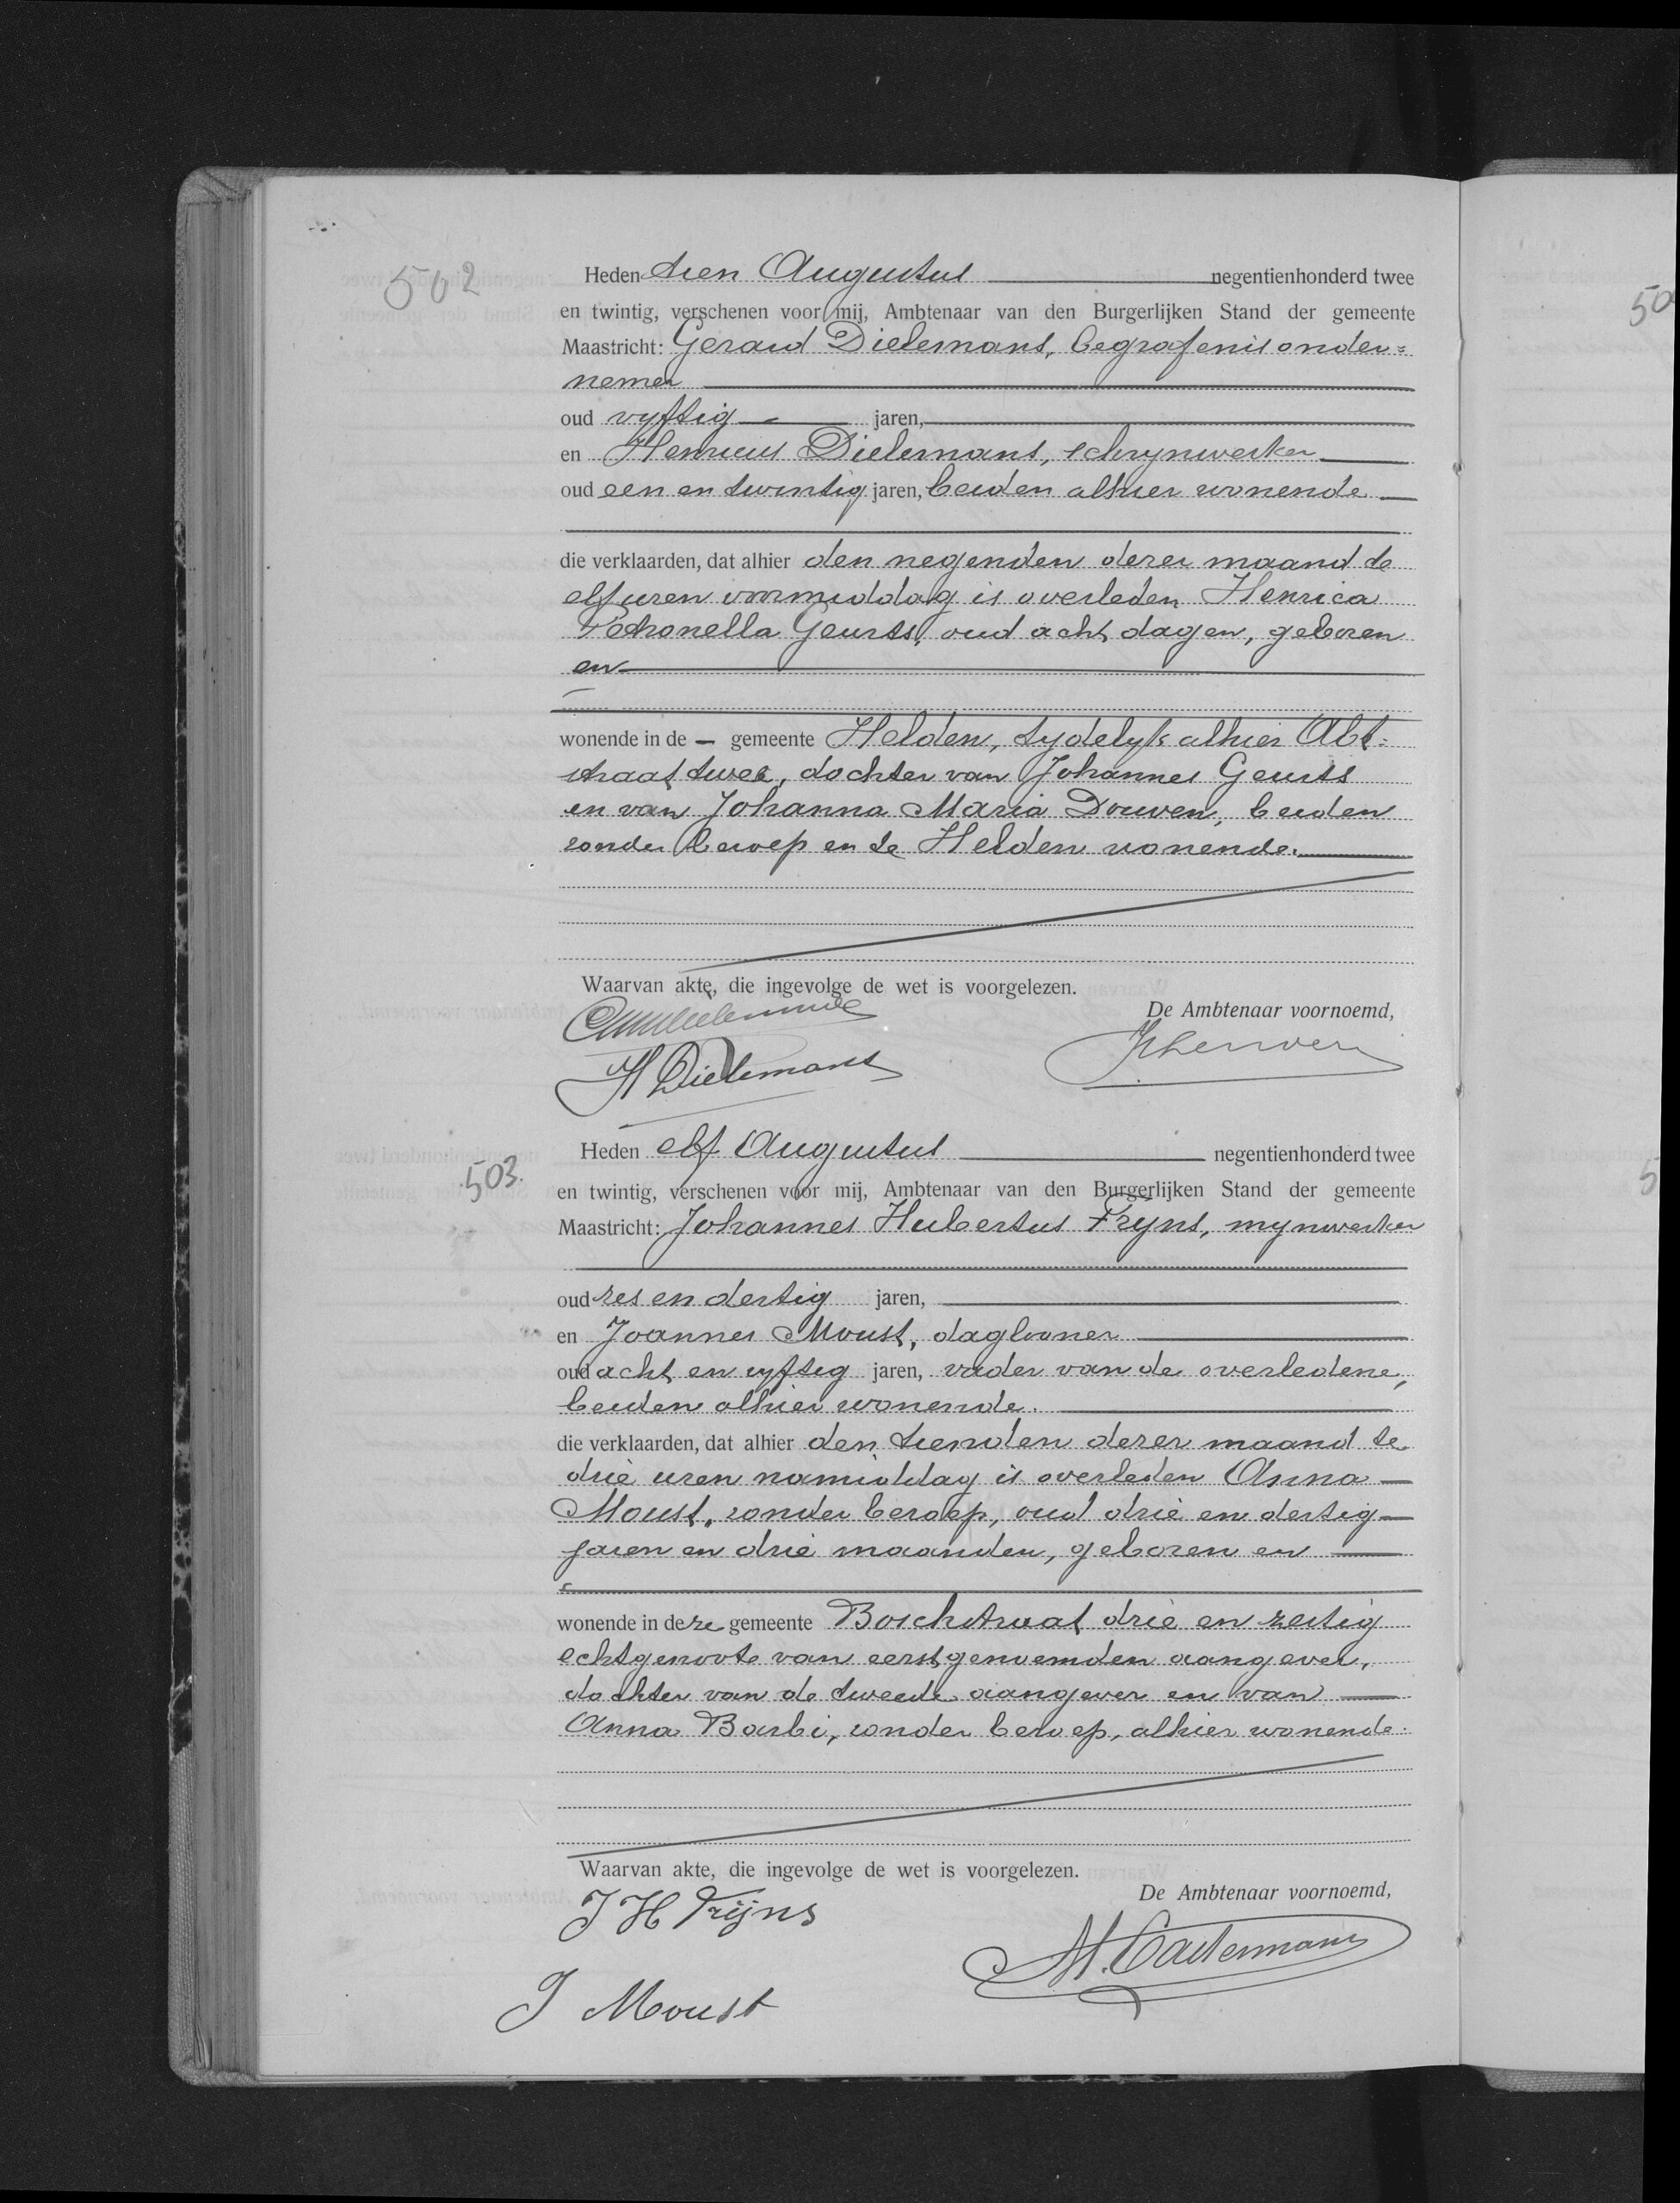 502
Heden tien Augustus negentienhonderd twee
en twintig, verschenen voor mij, Ambtenaar van den Burgerlijken Stand der gemeente
Maastricht: Gerard Dielemans, begrafenisonder=
nemer
oud vyftig jaren,
en Henricus Dielemans, schrynwerker
oud een en twintig jaren, beiden alhier wonende
die verklaarden, dat alhier den negenden dezer maand te
elf uren voormiddag is overleden Henrica
Petronella Geurts, oud acht dagen, geboren
en
wonende in de — gemeente Helden, tydelyk alhier Abt=
straat twee, dochter van Johannes Geurts
en van Johanna Maria Douven, beiden
zonder beroep en te Helden wonende.
Waarvan akte, die ingevolge de wet is voorgelezen.
De Ambtenaar voornoemd,
H Dielemans
503.
Heden elf Augustus negentienhonderd twee
en twintig, verschenen voor mij, Ambtenaar van den Burgerlijken Stand der gemeente
Maastricht: Johannes Hubertus Fryns, mynwerker
oud zes en dertig jaren,
en Joannes Moust, daglooner
oud acht en vyftig jaren, vader van de overledene,
beiden alhier wonende.
die verklaarden, dat alhier den tienden dezer maand te
drie uren namiddag is overleden Anna
Moust, zonder beroep, oud drie en dertig
jaren en drie maanden, geboren en
wonende in deze gemeente Boschstraat drie en zestig
echtgenoote van eerstgenoemden aangever,
dochter van de tweede aangever en van
Anna Barbi, zonder beroep, alhier wonende.
Waarvan akte, die ingevolge de wet is voorgelezen.
De Ambtenaar voornoemd,
J H Frijns
J Moust